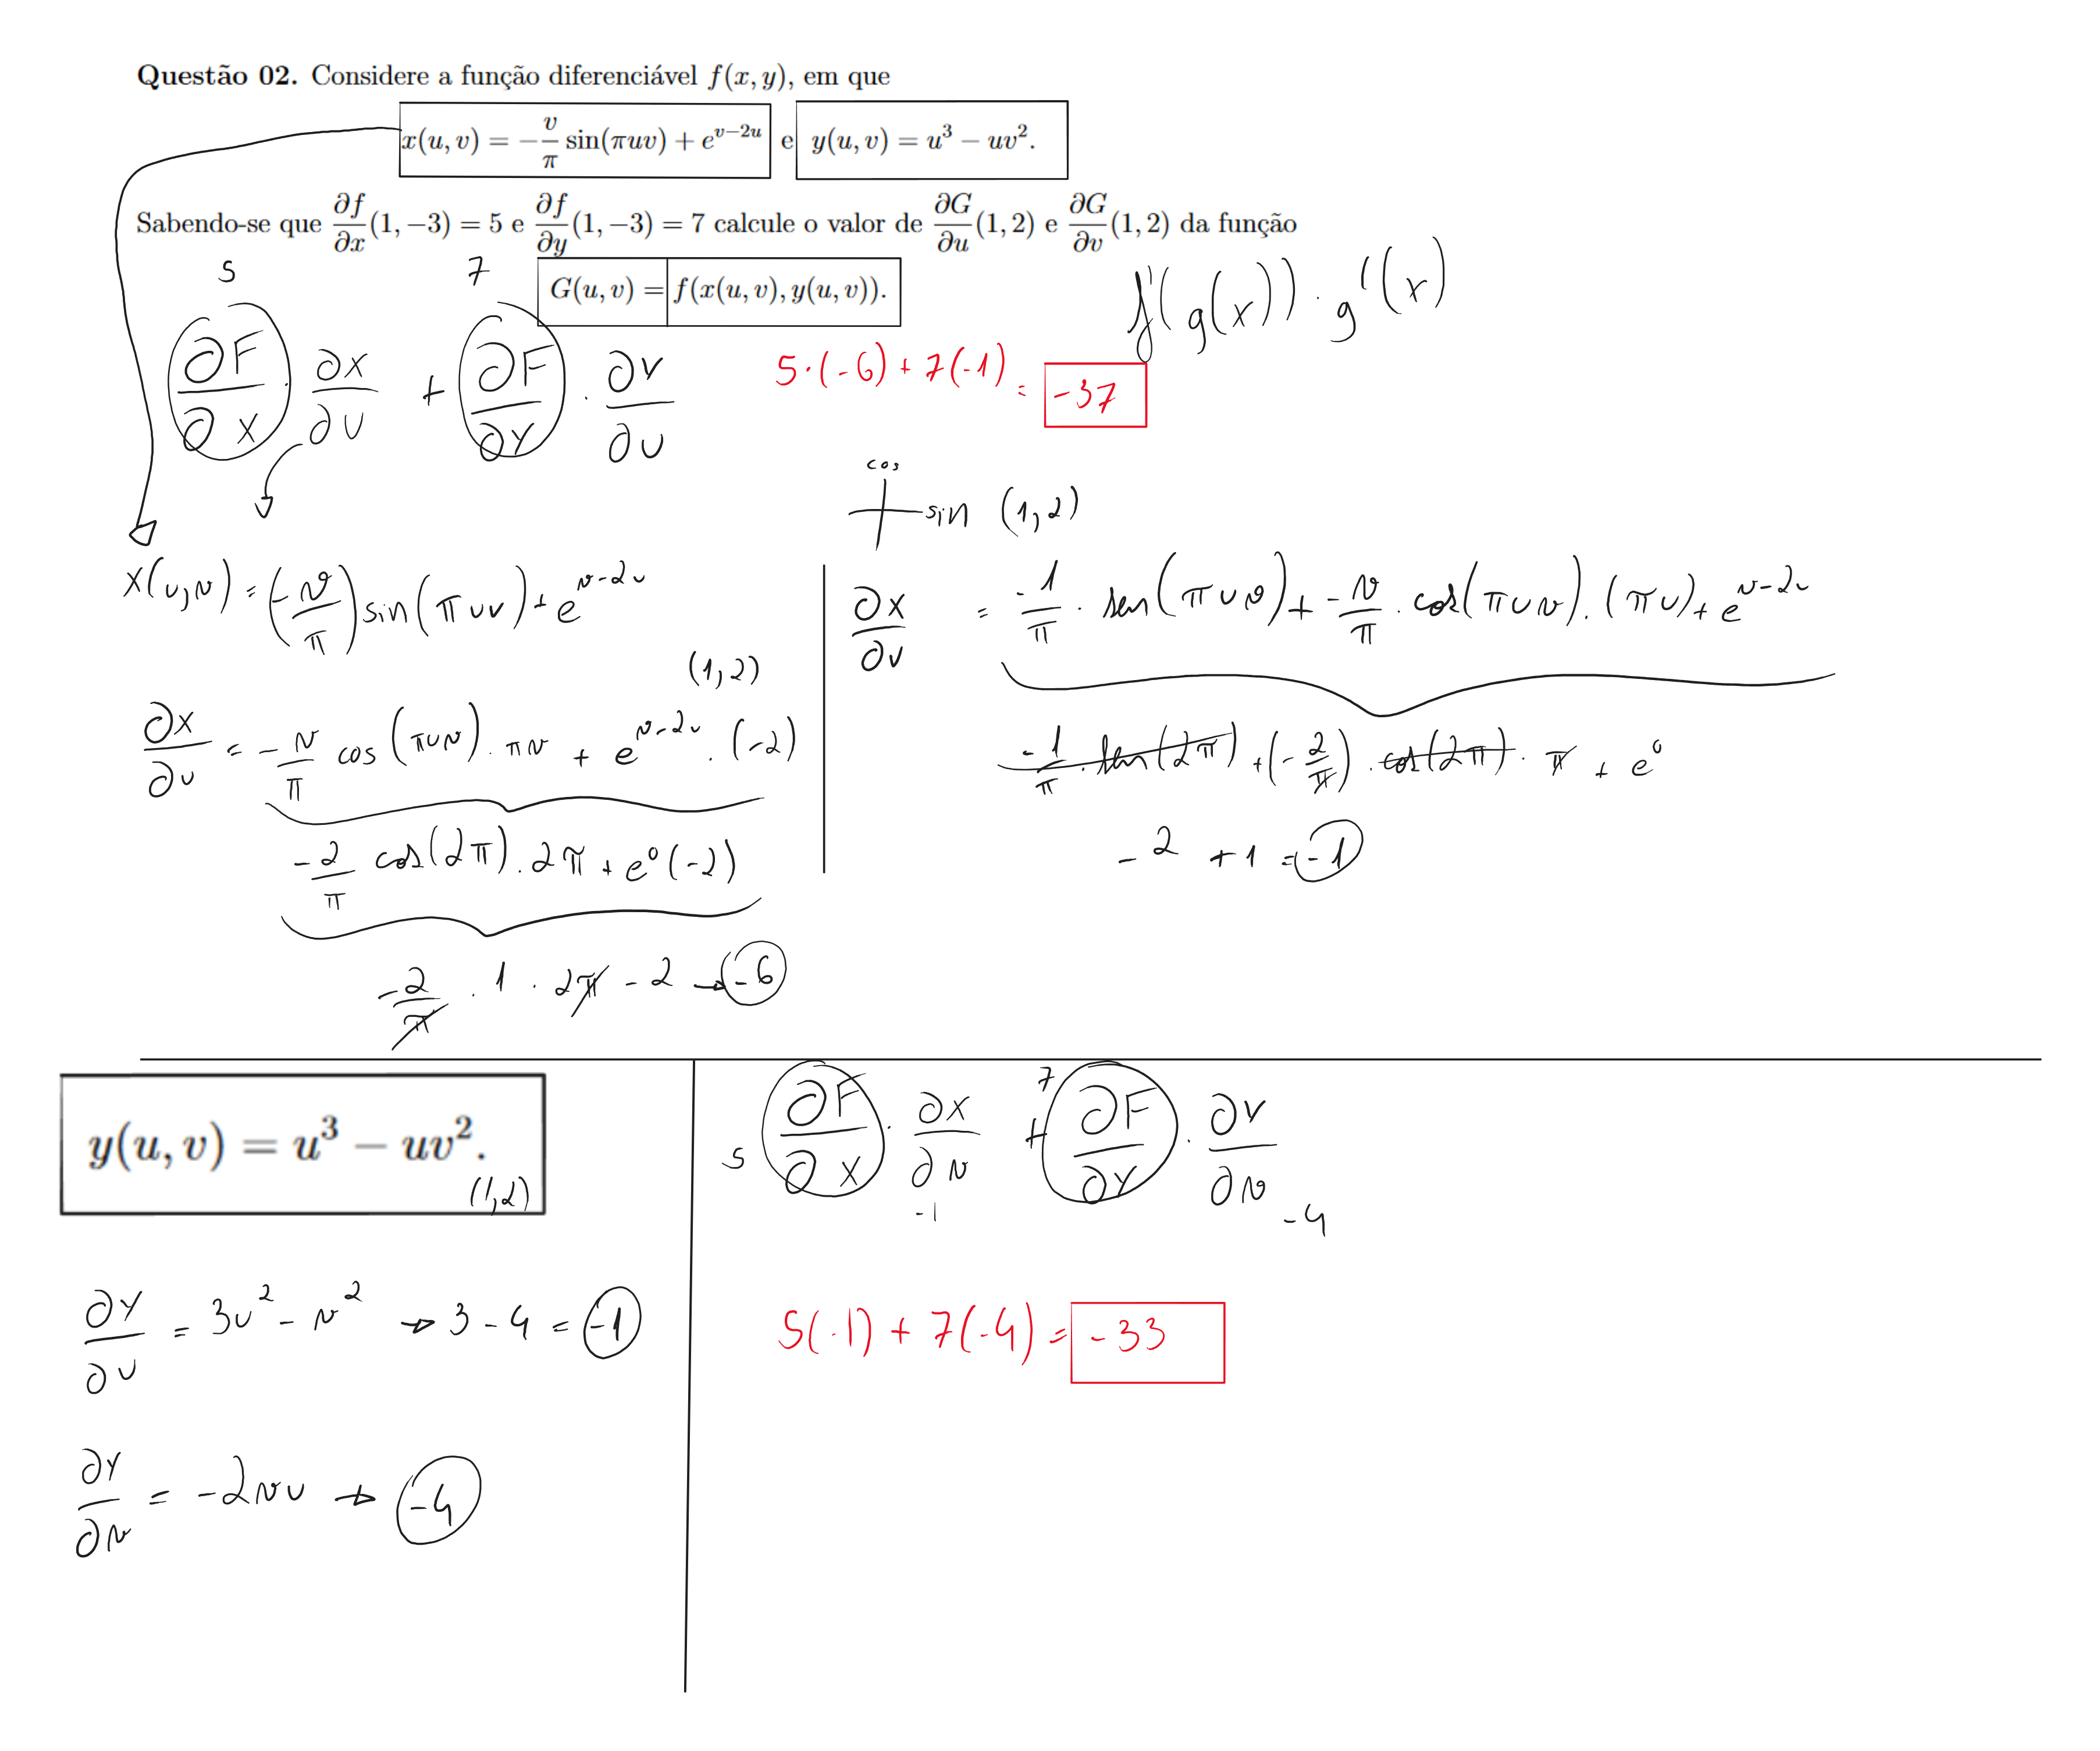 Questão 02. Considere a função diferenciável f(x, y), em que
x(u, v) = −v/π sin(πuv) + e^{v−2u} e y(u, v) = u³ − uv².
Sabendo-se que ∂f/∂x(1, −3) = 5 e ∂f/∂y(1, −3) = 7 calcule o valor de ∂G/∂u(1, 2) e ∂G/∂v(1, 2) da função
G(u, v) = f(x(u, v), y(u, v)).
f'(g(x)) · g'(x)
5 7
∂F/∂x · ∂x/∂u + ∂F/∂y · ∂y/∂u
5·(-6) + 7(-1) = -37
cos
sin (1,2)
x(u,v) = (-v/π) sin(πuv) + e^{v-2u}
(1,2)
∂x/∂u = -v/π cos(πuv) · πv + e^{v-2u} · (-2)
-2/π cos(2π) · 2π + e⁰(-2)
-2/π · 1 · 2π - 2 → -6
∂x/∂v = -1/π · sen(πuv) + -v/π · cos(πuv) · (πu) + e^{v-2u}
-1/π · sen(2π) + (-2/π) · cos(2π) · π + e⁰
-2 + 1 = -1
y(u, v) = u³ − uv².
(1,2)
∂y/∂u = 3u² - v² → 3 - 4 = -1
∂y/∂v = -2vu → -4
5 ∂F/∂x · ∂x/∂v + 7 ∂F/∂y · ∂y/∂v
-1 -4
5(-1) + 7(-4) = -33